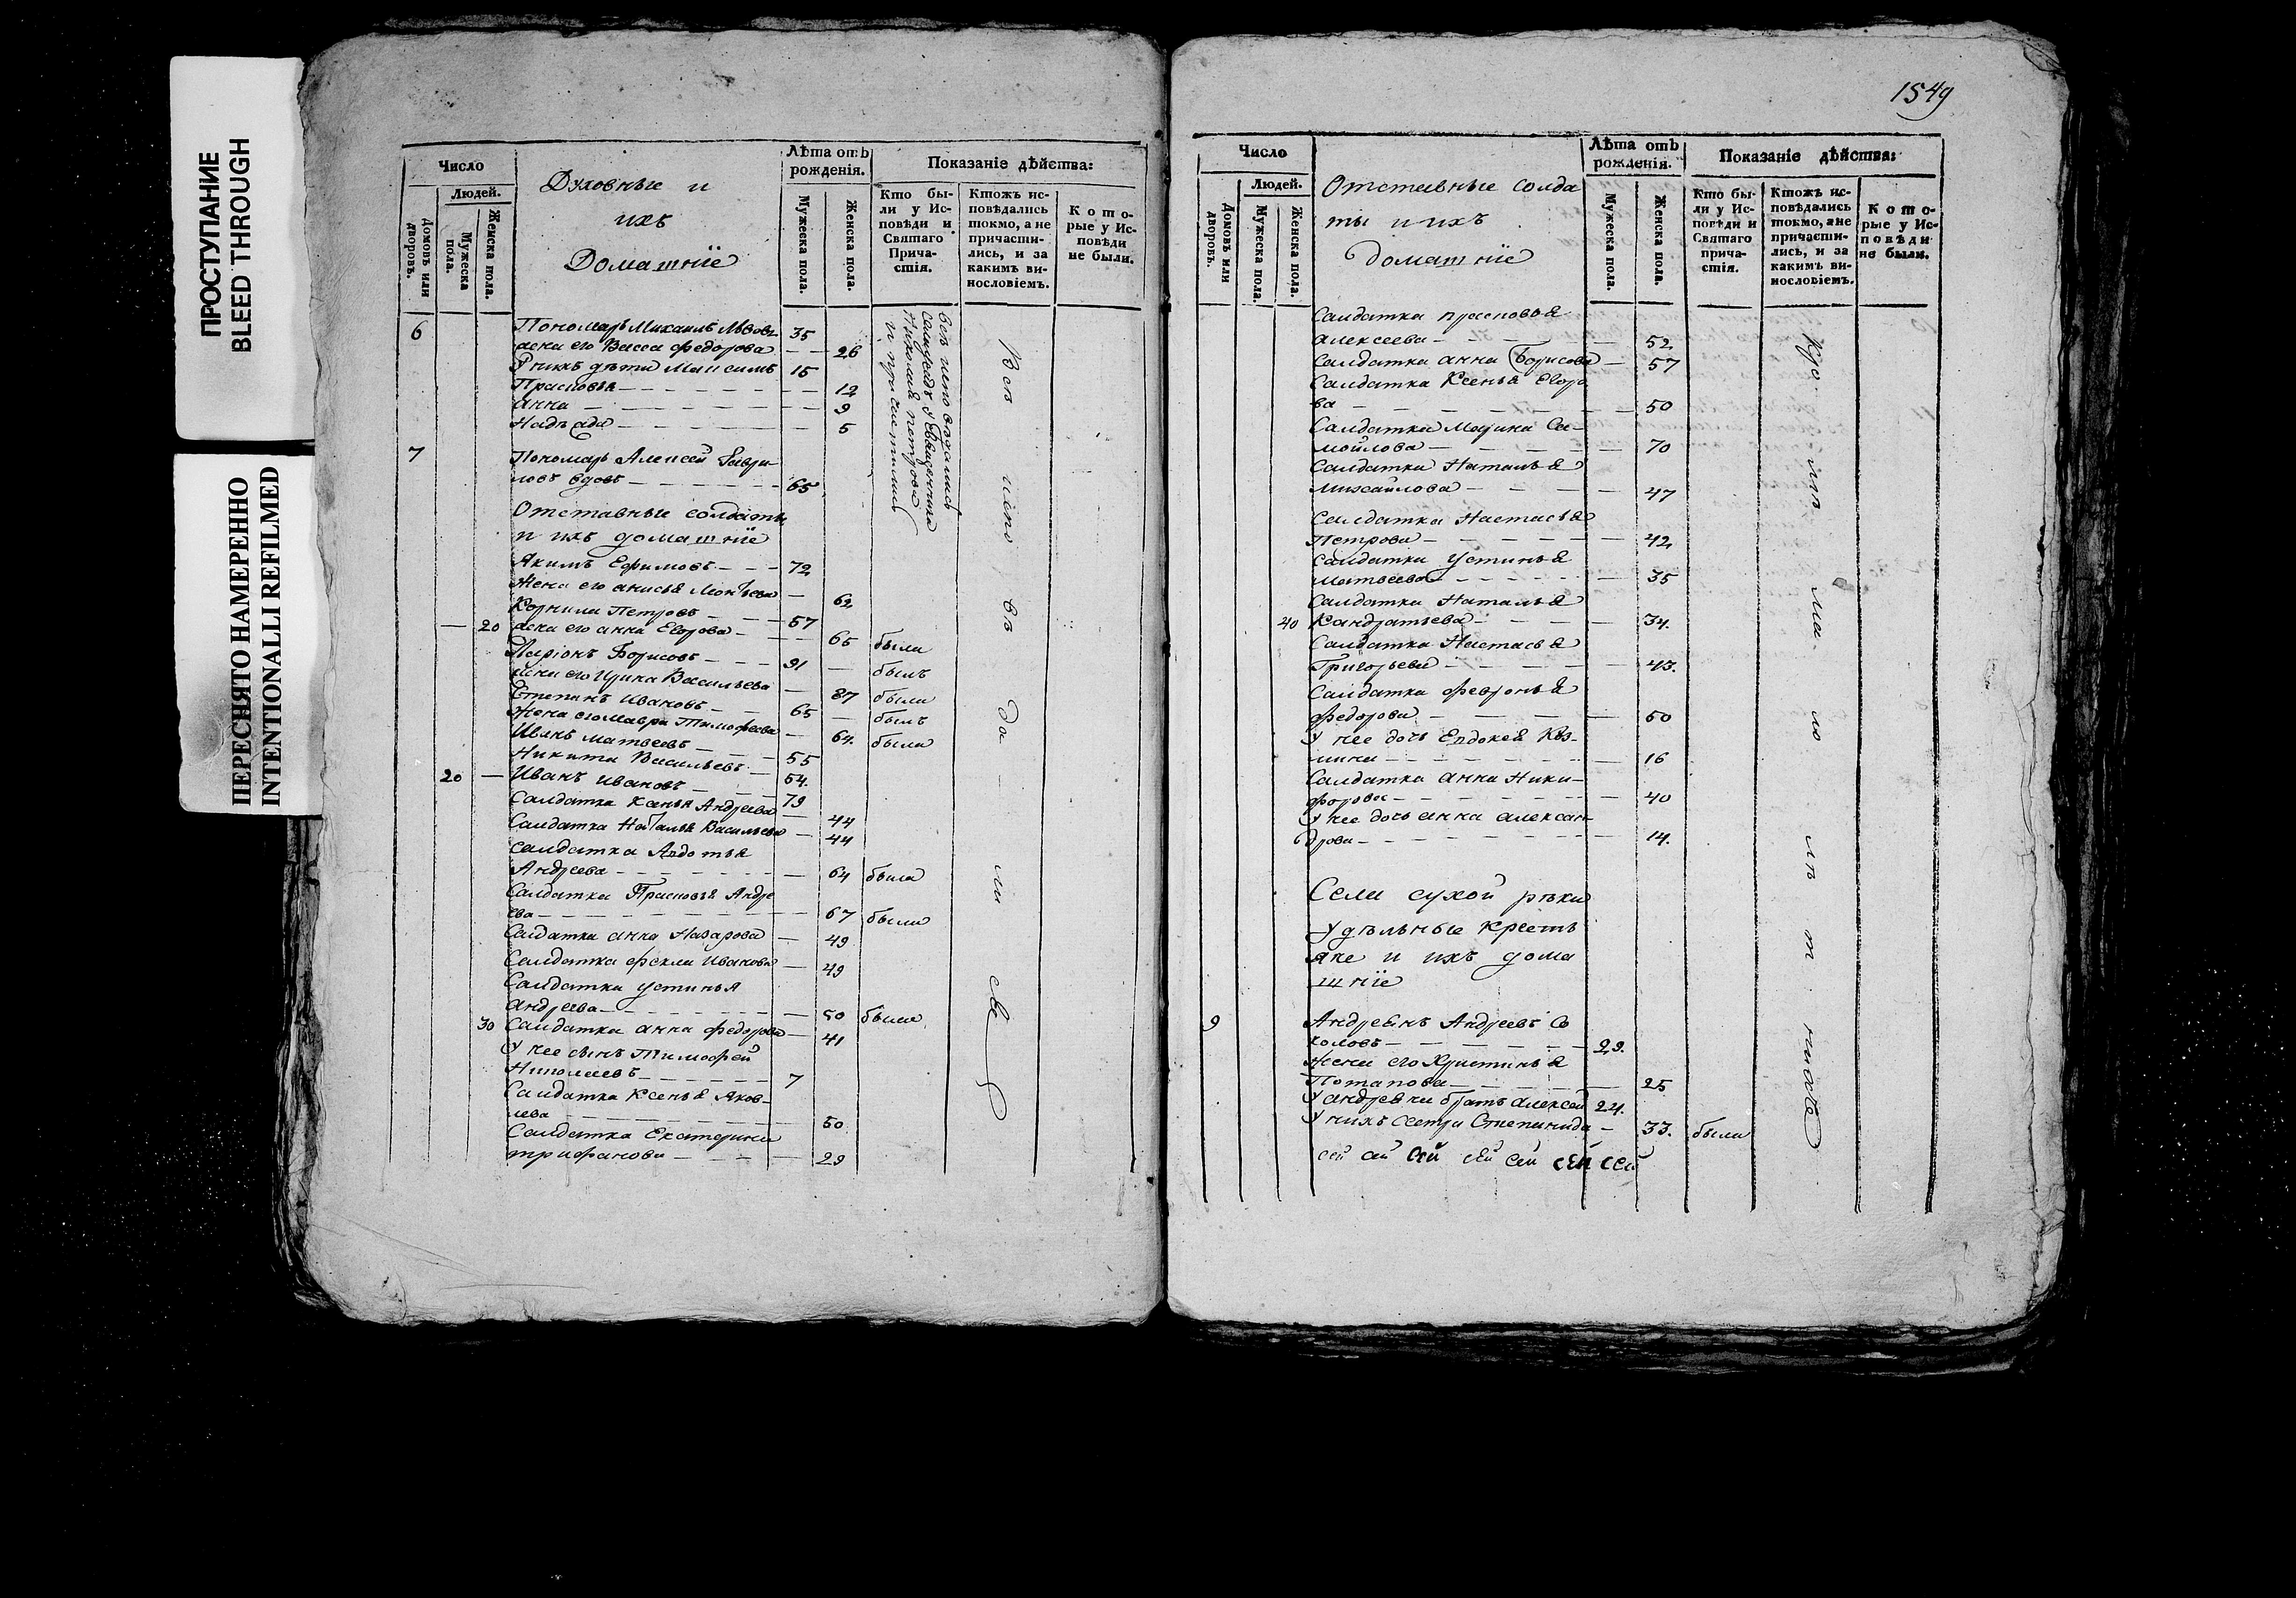 ПРОСТУПАНИЕ
BLEED THROUGH
ПЕРЕСНЯТО НАМЕРЕННО
INTENTIONALLI REFILMED
Число
Людей.
Домовъ или дворовъ.
Мужеска пола.
Женска пола.
Духовные и
ихъ
Домашніе
Лѣта отъ
рожденія.
Мужеска пола.
Женска пола.
Показаніе дѣйства:
Кто бы-
ли у Ис-
повѣди и
Святаго
Прича-
стія.
Ктожъ ис-
повѣдались
токмо, а не
причасти-
лись, и за
какимъ ви-
нословіемъ.
Кото-
рые у Ис-
повѣди
не были.
6 Пономарь Михаилъ Львовъ 35
жена его Васса Федорова — — 26
У нихъ дѣти Максимъ 15
Прасковья — — 12
Анна — — 9
Надѣжда — — 5
7 Пономарь Алексей Гаври-
ловъ вдовъ — 65
Отставные солдаты
и ихъ домашніе
Якимъ Ефимовъ — — 72
Жена его анисья — 62
Корнила Петровъ — — 57
— 20 жена его анна Егорова — — 65 была
Ларіонъ Борисовъ — — 91 — былъ
жена его Ирина Васильева — 87 была
Степанъ Ивановъ — — 65 — былъ
Жена его Мавра Тимофеева — 64. была
Иванъ Матвеевъ — — 55
Никита Васильевъ — 54.
20 — Иванъ Ивановъ — — 79
Салдатка Ксенья Андреева — 44
Салдатка Наталья Васильева — 44
Салдатка Авдотья
Андреева — — 64 была
Салдатка Прасковья Андре
ева — — 67 была
Салдатка анна Назарова — 49
Салдатка фекла Иванова — 49
Салдатка устинья
андреева — — 50 была
30 Салдатка анна федорова — 41
У нее сынъ Тимофей
Николаевъ — — 7
Салдатка Ксенья Яков-
лева — — 50
Салдатка Екатерина
трифанова — — 29
1549
Число
Людей.
Домовъ или дворовъ.
Мужеска пола.
Женска пола.
Отставные солда
ты и ихъ
домашніе
Лѣта отъ
рожденія.
Мужеска пола.
Женска пола.
Показаніе дѣйства:
Кто бы-
ли у Ис-
повѣди и
Святаго
прича-
стія.
Ктожъ ис-
повѣдались
токмо, а не
причасти-
лись, и за
какимъ ви-
нословіемъ.
Кото-
рые у Ис-
повѣди
не были.
Салдатка прасковья
алексеева — — 52
Салдатка анна Борисова — 57
Салдатка Ксенья Егоро
ва — — 50
Салдатка Марина Са-
мойлова — — 70
Салдатка Наталья
михайлова — — 47
Салдатка Настасья
Петрова — — 42
Салдатка Устинья
матвеева — — 35
Салдатка Наталья
40 Кандратьева — — 34.
Салдатка Настасья
Григорьева — — 43.
Салдатка февронья
федорова — — 50
У нее дочь Евдокея Коз-
мина — — 16
Салдатка анна Ники-
форова — — 40
У нее дочь анна алексан-
дрова — — 14.
Села сухой рѣки
удѣльные кресть
яне и ихъ дома
шніе
9 Андреянъ Андреевъ Со
коловъ — — 29.
Жена его Христинья
Потапова — — 25
У андреяна братъ алексей 24.
У нихъ сестра Степанида — 33. была
сей сей сей сей сей сей сей